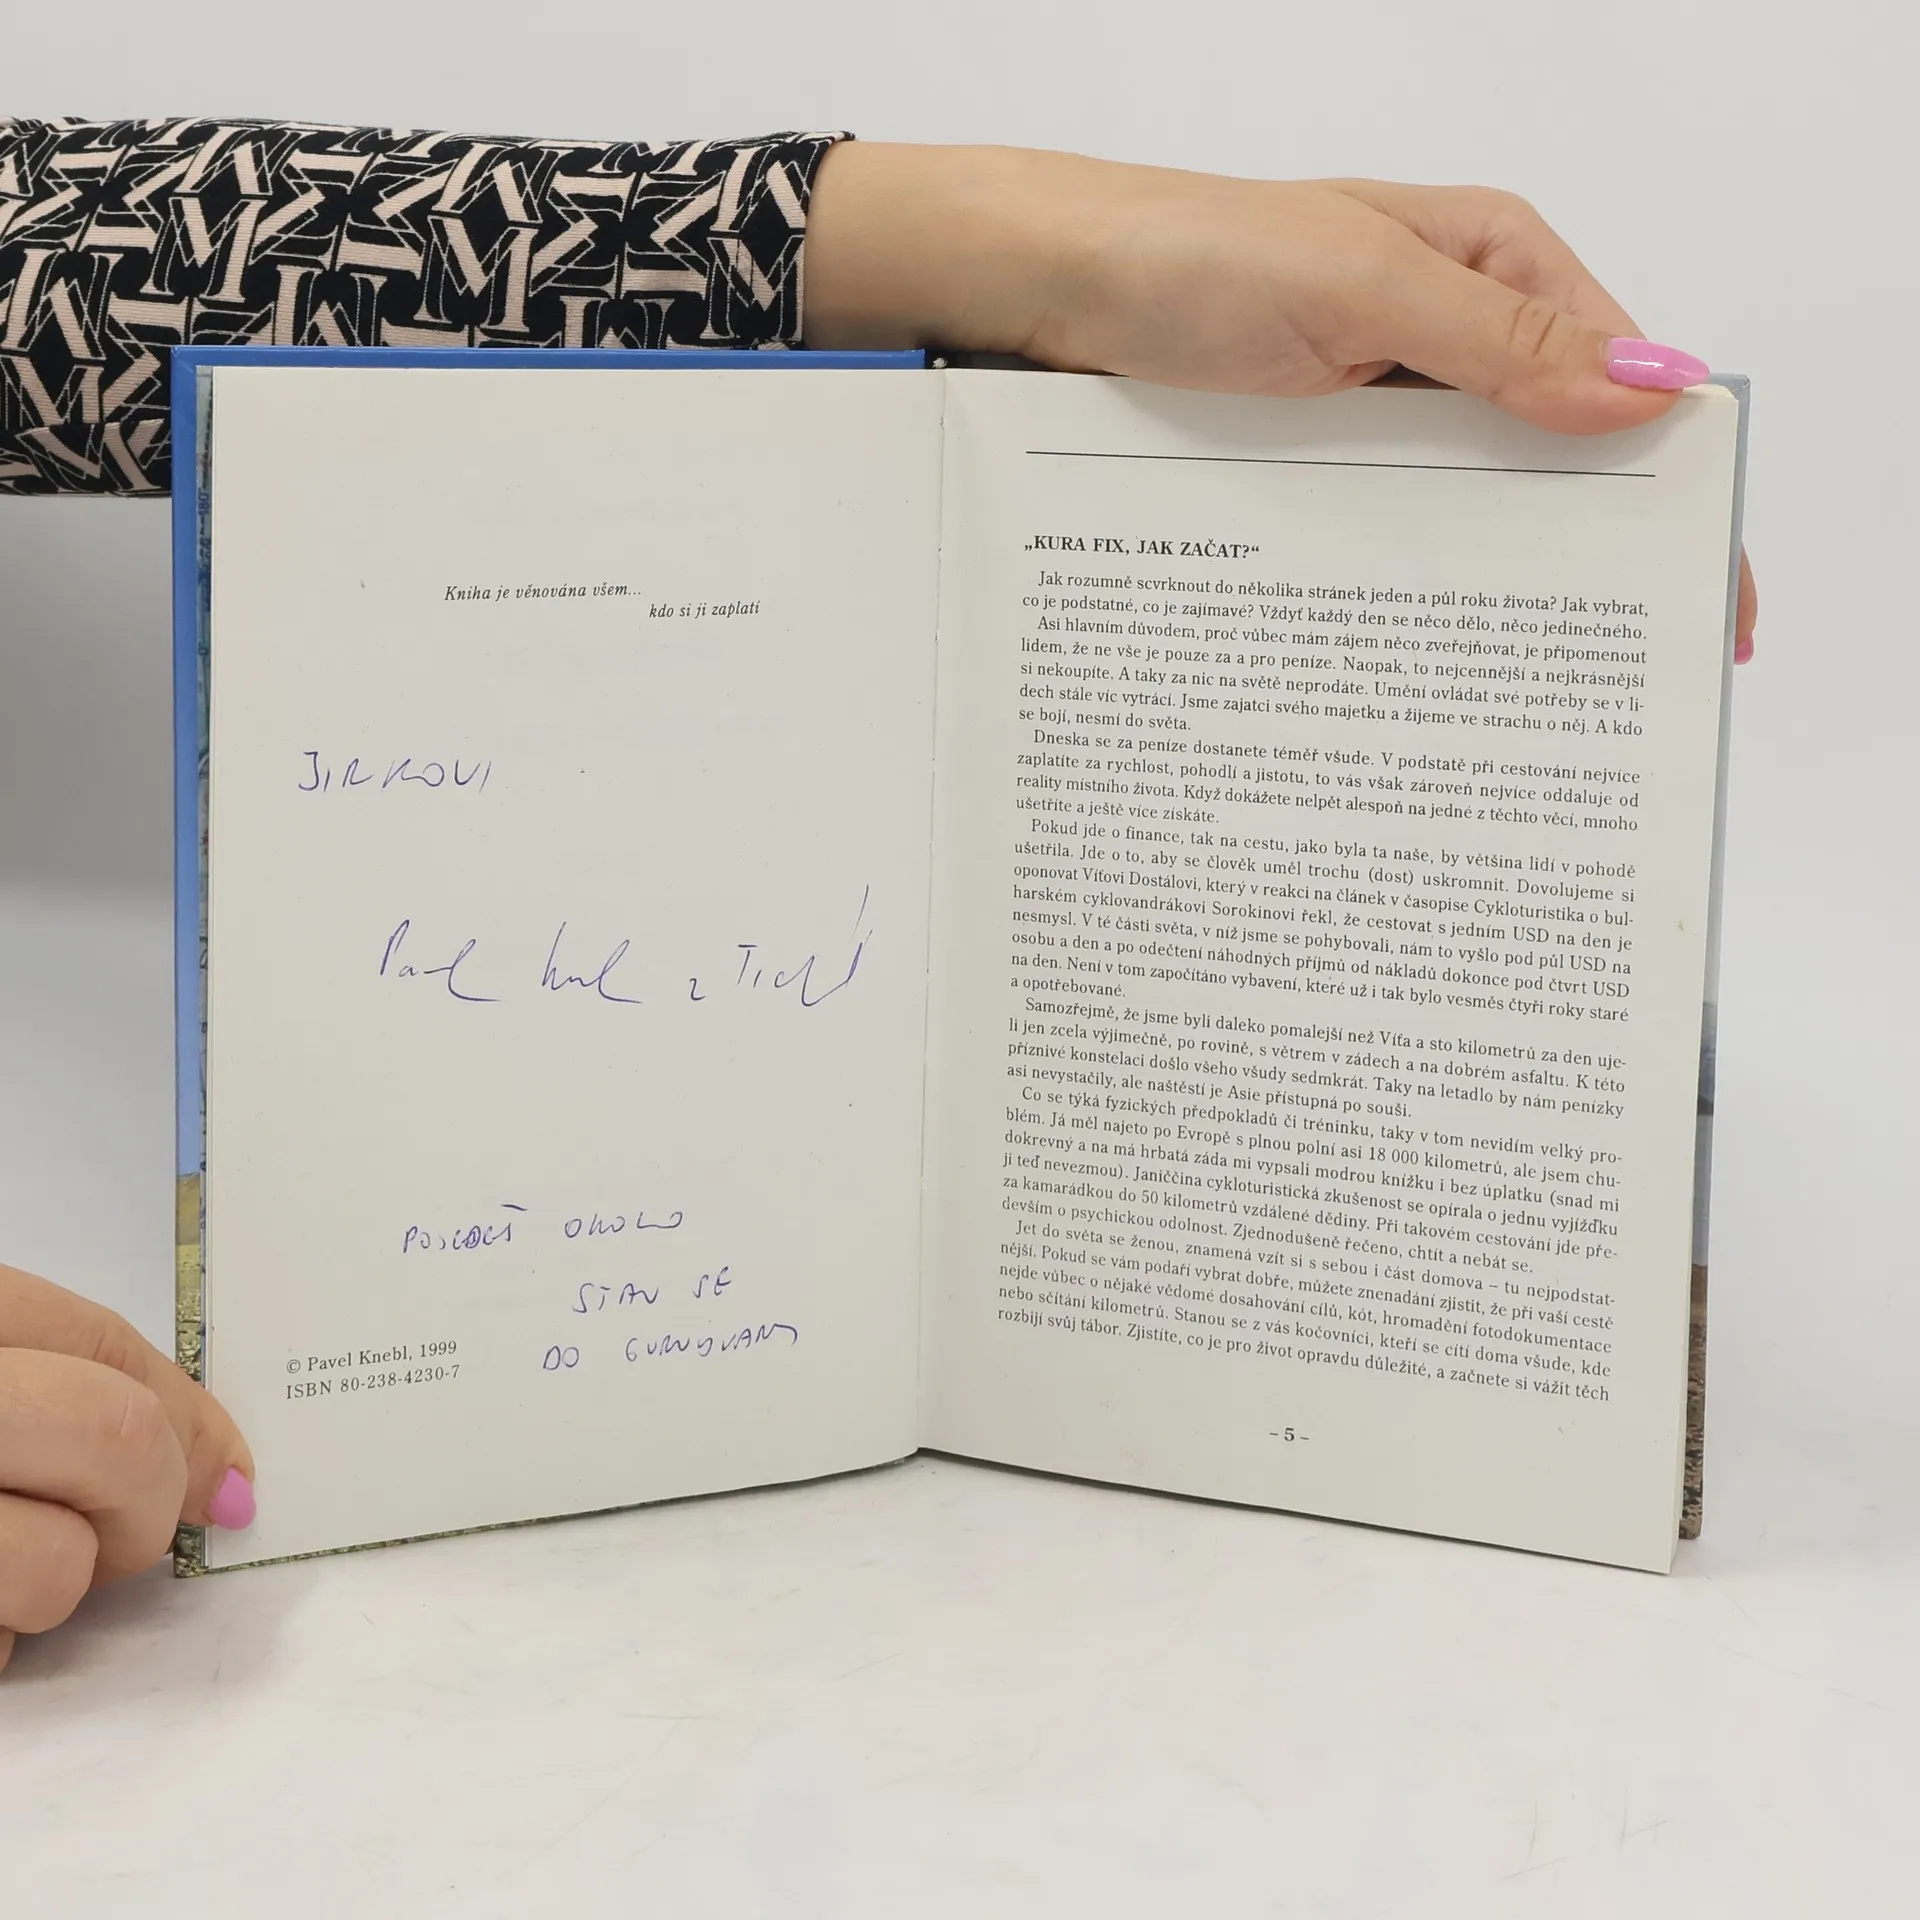 Kniha je věnována všem...
kdo si ji zaplatí
JIRKOVI
Pavel
OKOLO
STAV SE
DO
© Pavel Knebl, 1999
ISBN 80-238-4230-7
„KURA FIX, JAK ZAČAT?“
Jak rozumně scvrknout do několika stránek jeden a půl roku života? Jak vybrat,
co je podstatné, co je zajímavé? Vždyť každý den se něco dělo, něco jedinečného.
Asi hlavním důvodem, proč vůbec mám zájem něco zveřejňovat, je připomenout
lidem, že ne vše je pouze za a pro peníze. Naopak, to nejcennější a nejkrásnější
si nekoupíte. A taky za nic na světě neprodáte. Umění ovládat své potřeby se v li-
dech stále víc vytrácí. Jsme zajatci svého majetku a žijeme ve strachu o něj. A kdo
se bojí, nesmí do světa.
Dneska se za peníze dostanete téměř všude. V podstatě při cestování nejvíce
zaplatíte za rychlost, pohodlí a jistotu, to vás však zároveň nejvíce oddaluje od
reality místního života. Když dokážete nelpět alespoň na jedné z těchto věcí, mnoho
ušetříte a ještě více získáte.
Pokud jde o finance, tak na cestu, jako byla ta naše, by většina lidí v pohodě
ušetřila. Jde o to, aby se člověk uměl trochu (dost) uskromnit. Dovolujeme si
oponovat Víťovi Dostálovi, který v reakci na článek v časopise Cykloturistika o bul-
harském cyklovandrákovi Sorokinovi řekl, že cestovat s jedním USD na den je
nesmysl. V té části světa, v níž jsme se pohybovali, nám to vyšlo pod půl USD na
osobu a den a po odečtení náhodných příjmů od nákladů dokonce pod čtvrt USD
na den. Není v tom započítáno vybavení, které už i tak bylo vesměs čtyři roky staré
a opotřebované.
Samozřejmě, že jsme byli daleko pomalejší než Víťa a sto kilometrů za den uje-
li jen zcela výjimečně, po rovině, s větrem v zádech a na dobrém asfaltu. K této
příznivé konstelaci došlo všeho všudy sedmkrát. Taky na letadlo by nám penízky
asi nevystačily, ale naštěstí je Asie přístupná po souši.
Co se týká fyzických předpokladů či tréninku, taky v tom nevidím velký pro-
blém. Já měl najeto po Evropě s plnou polní asi 18 000 kilometrů, ale jsem chu-
dokrevný a na má hrbatá záda mi vypsali modrou knížku i bez úplatku (snad mi
ji teď nevezmou). Janiččina cykloturistická zkušenost se opírala o jednu vyjížďku
za kamarádkou do 50 kilometrů vzdálené dědiny. Při takovém cestování jde pře-
devším o psychickou odolnost. Zjednodušeně řečeno, chtít a nebát se.
Jet do světa se ženou, znamená vzít si s sebou i část domova – tu nejpodstat-
nější. Pokud se vám podaří vybrat dobře, můžete znenadání zjistit, že při vaší cestě
nejde vůbec o nějaké vědomé dosahování cílů, kót, hromadění fotodokumentace
nebo sčítání kilometrů. Stanou se z vás kočovníci, kteří se cítí doma všude, kde
rozbijí svůj tábor. Zjistíte, co je pro život opravdu důležité, a začnete si vážit těch
– 5 –